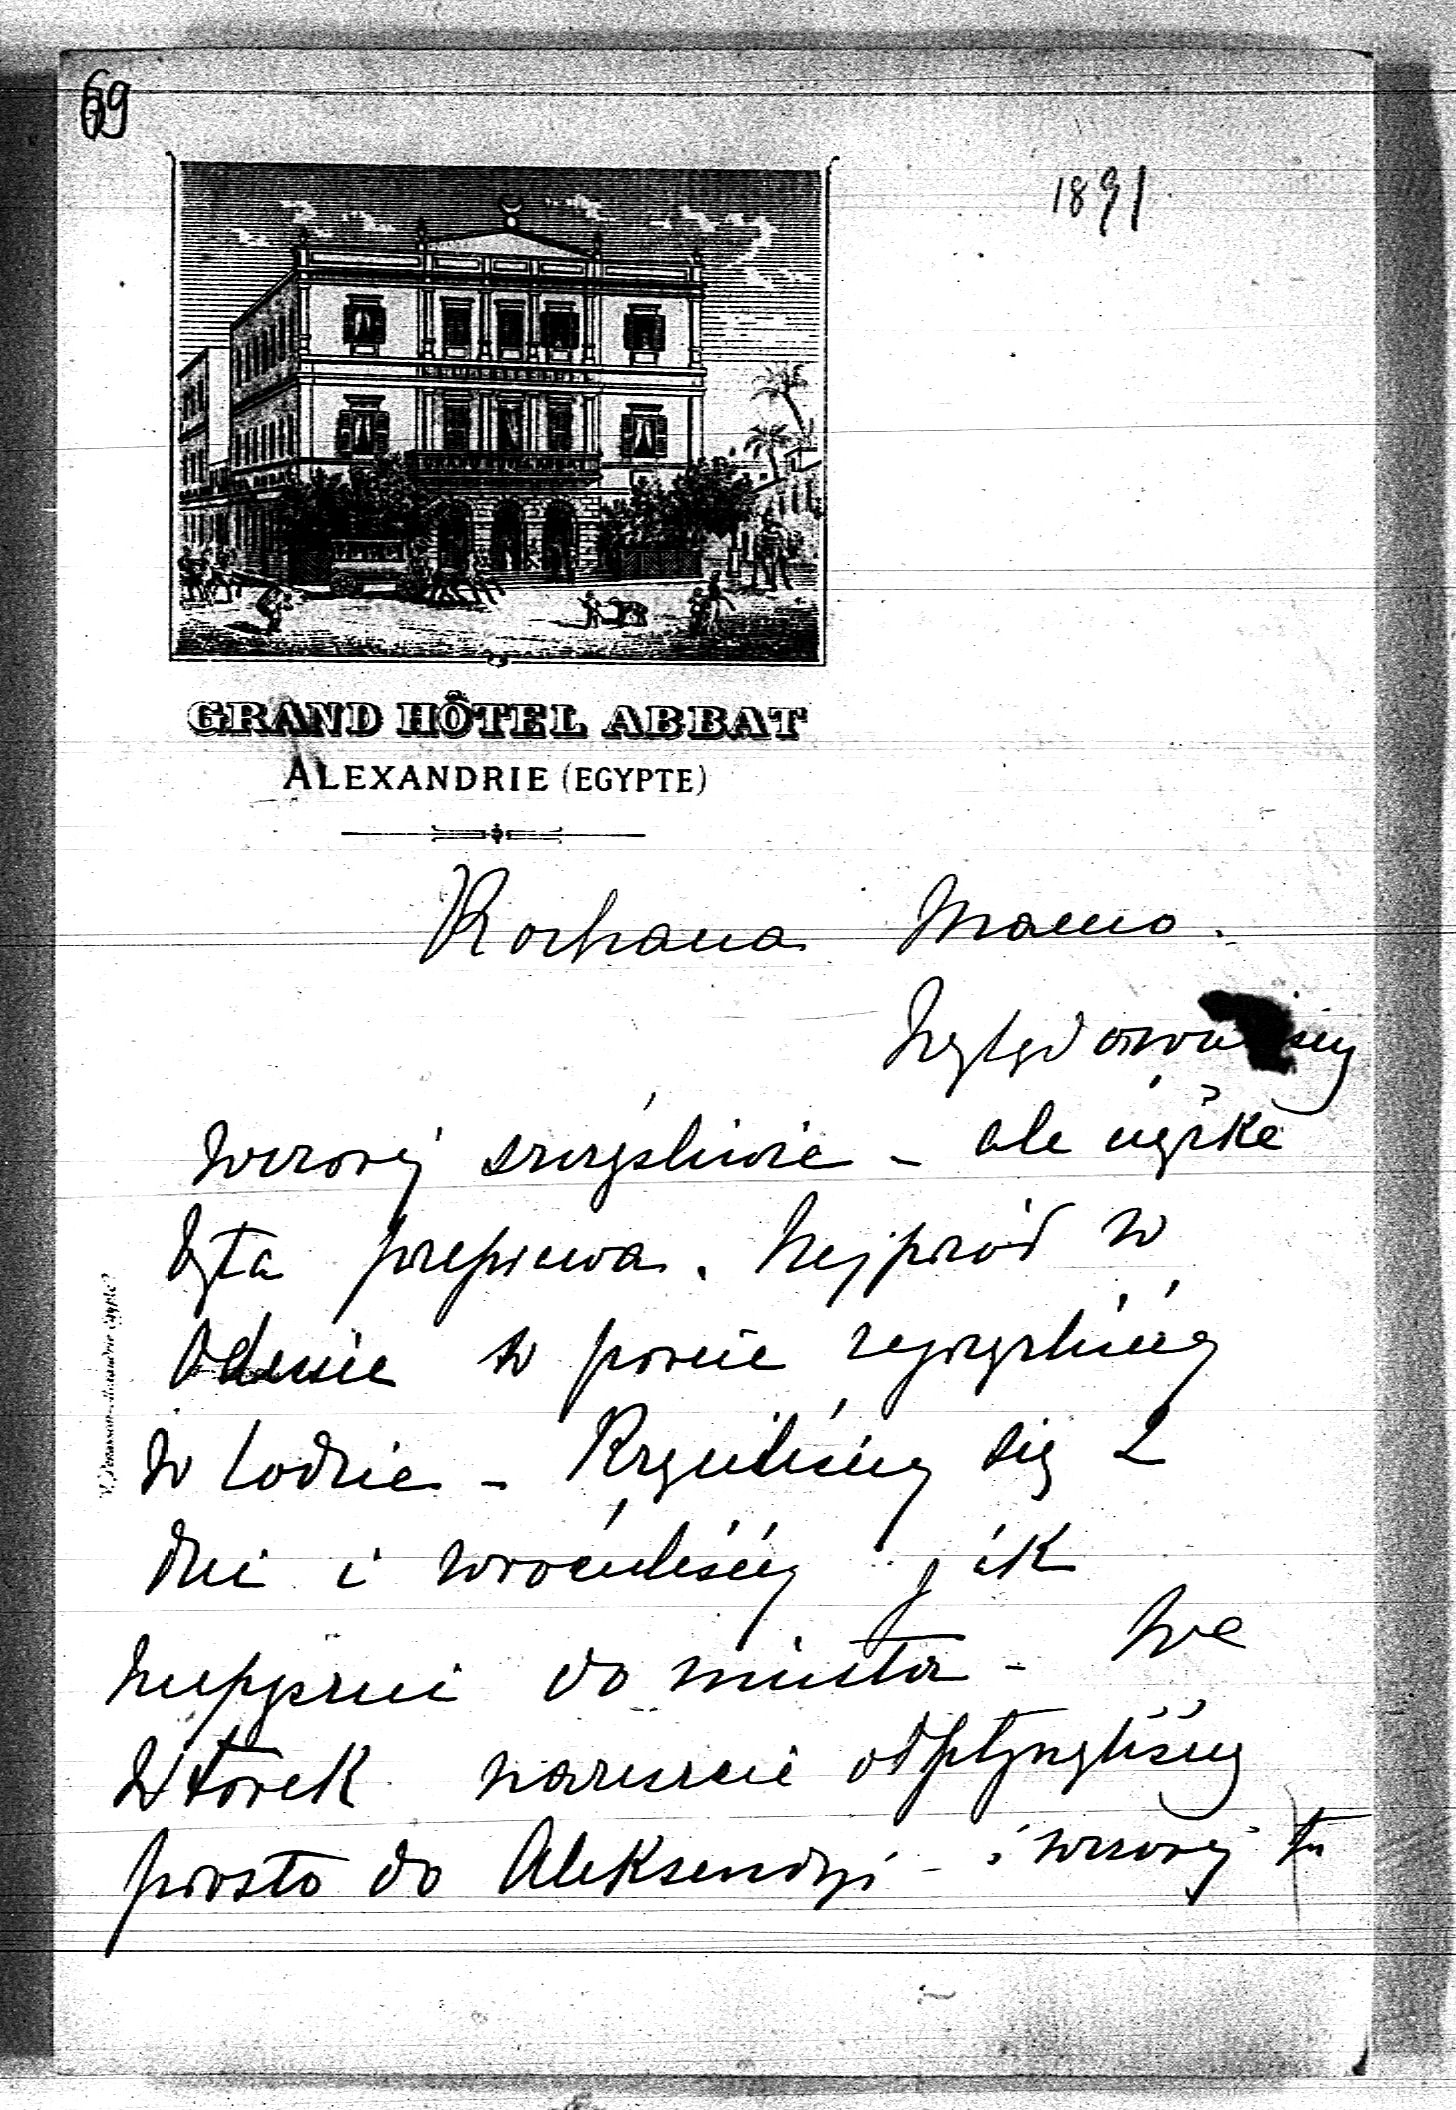 69
1891
GRAND HÔTEL ABBAT
ALEXANDRIE (EGYPTE)
Kochana Mamo.
Wylądowaliśmy
wczoraj szczęśliwie – ale ciężka
była przeprawa. Najprzód w
Odessie w porcie
w lodzie – się 2
dni i wróciliśmy jak
niepyszni do miasta – We
Wtorek nareszcie odpłynęliśmy
prosto do Aleksandryi – i wczoraj tu